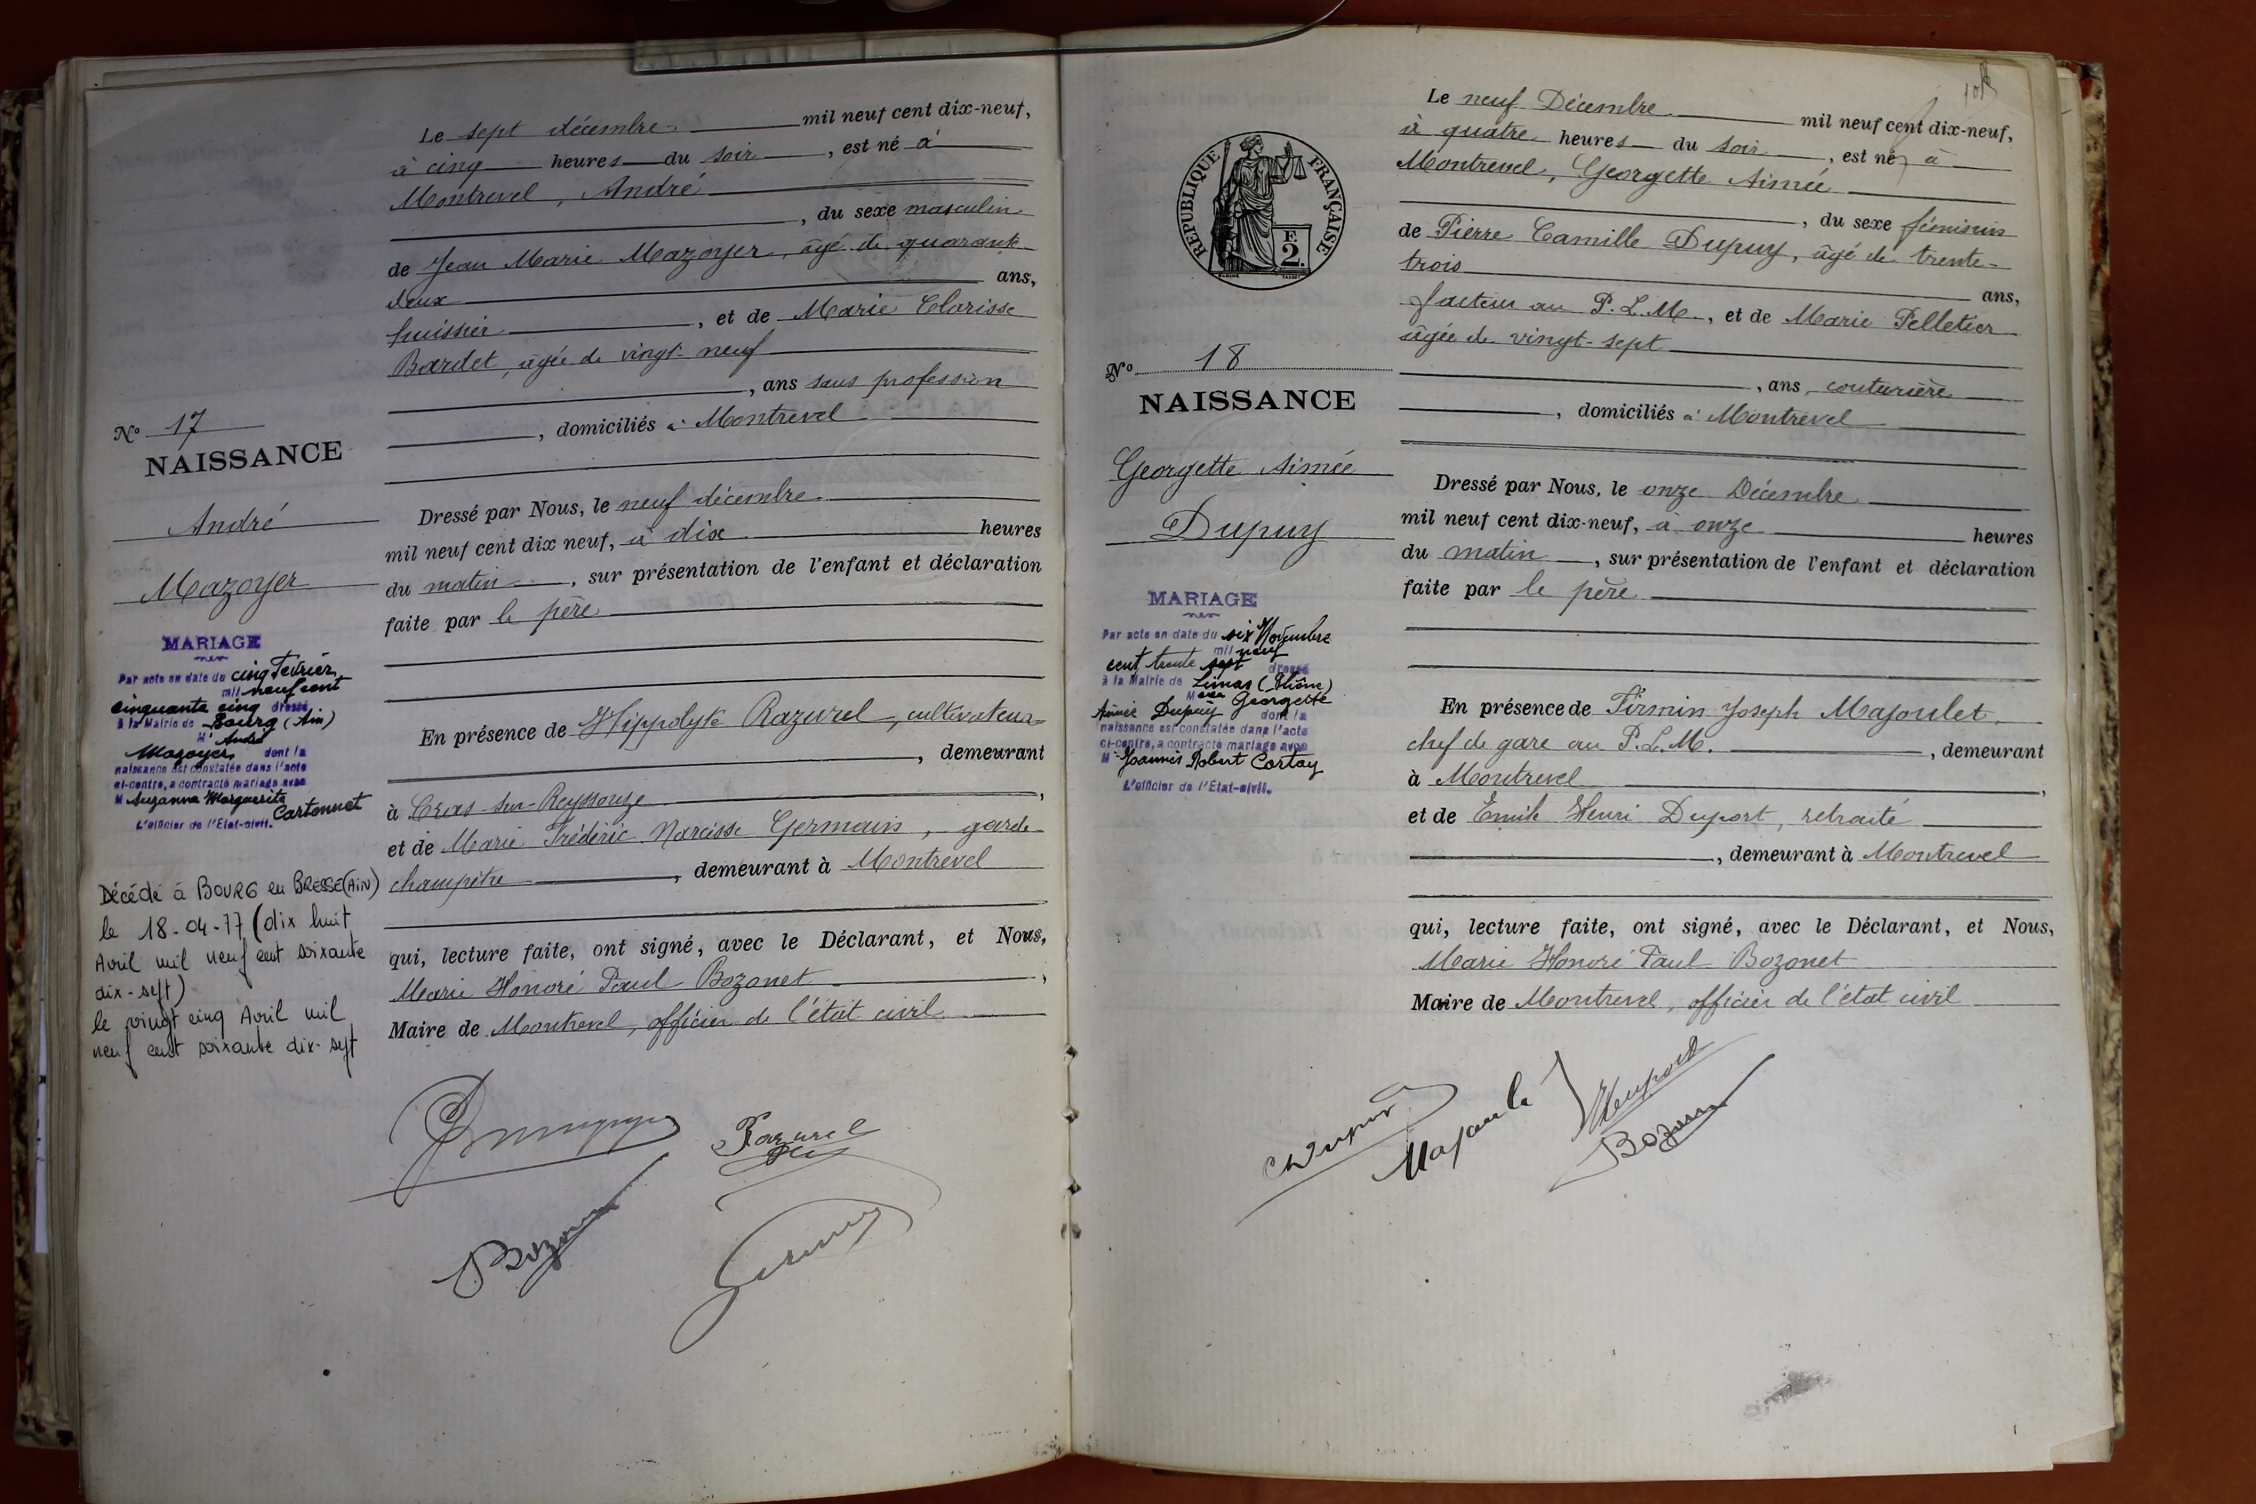 Le sept décembre mil neuf cent dix-neuf,
à cinq heures du soir, est né à
Montrevel, André
, du sexe masculin
de Jean Marie Mazoyer, âgé de quarante
deux ans,
huissier, et de Marie Clarisse
Bardet, âgée de vingt-neuf
, ans sans profession
, domiciliés à Montrevel
No 17
NAISSANCE
André
Mazoyer
Dressé par Nous, le neuf décembre
mil neuf cent dix neuf, à dix heures
du matin, sur présentation de l'enfant et déclaration
faite par le père
MARIAGE
Par acte en date du cinq Février
mil neuf cent
cinquante cinq dressé
à la Mairie de Bourg (Ain)
M. André
Mazoyer dont la
naissance est constatée dans l'acte
ci-contre, a contracté mariage avec
M Suzanne Marguerite
Cartonnet
L'officier de l'Etat-civil.
En présence de Hippolyte Razurel, cultivateur
, demeurant
à Cras-sur-Reyssouze,
et de Marie Frédéric Narcisse Germain, garde
champêtre, demeurant à Montrevel
Décédé à BOURG en BRESSE (AIN)
le 18-04-77 (dix huit
Avril mil neuf cent soixante
dix-sept)
le vingt cinq Avril mil
neuf cent soixante dix-sept
qui, lecture faite, ont signé, avec le Déclarant, et Nous,
Marie Honoré Paul Bozonet,
Maire de Montrevel, officier de l'état civil
Razurel
Bozonet
Germain
Le neuf Décembre mil neuf cent dix-neuf,
à quatre heures du soir, est né à
Montrevel, Georgette Aimée
, du sexe féminin
de Pierre Camille Dupuy, âgé de trente-
trois ans,
facteur au P.L.M., et de Marie Pelletier
âgée de vingt-sept
, ans, couturière
, domiciliés à Montrevel
RÉPUBLIQUE FRANÇAISE
F.
2.
No 18
NAISSANCE
Georgette Aimée
Dupuy
Dressé par Nous, le onze Décembre
mil neuf cent dix-neuf, à onze heures
du matin, sur présentation de l'enfant et déclaration
faite par le père
MARIAGE
Par acte en date du six Novembre
mil neuf
cent trente sept dressé
à la Mairie de Limas (Rhône)
M Georgette
Aimée Dupuy dont la
naissance est constatée dans l'acte
ci-contre, a contracté mariage avec
M Joannès Robert Cortay
L'officier de l'Etat-civil.
En présence de Firmin Joseph Majoulet,
chef de gare au P.L.M., demeurant
à Montrevel,
et de Emile Henri Duport, retraité
, demeurant à Montrevel
qui, lecture faite, ont signé, avec le Déclarant, et Nous,
Marie Honoré Paul Bozonet
Maire de Montrevel, officier de l'état civil
Dupuy
Majoulet
Duport
Bozonet